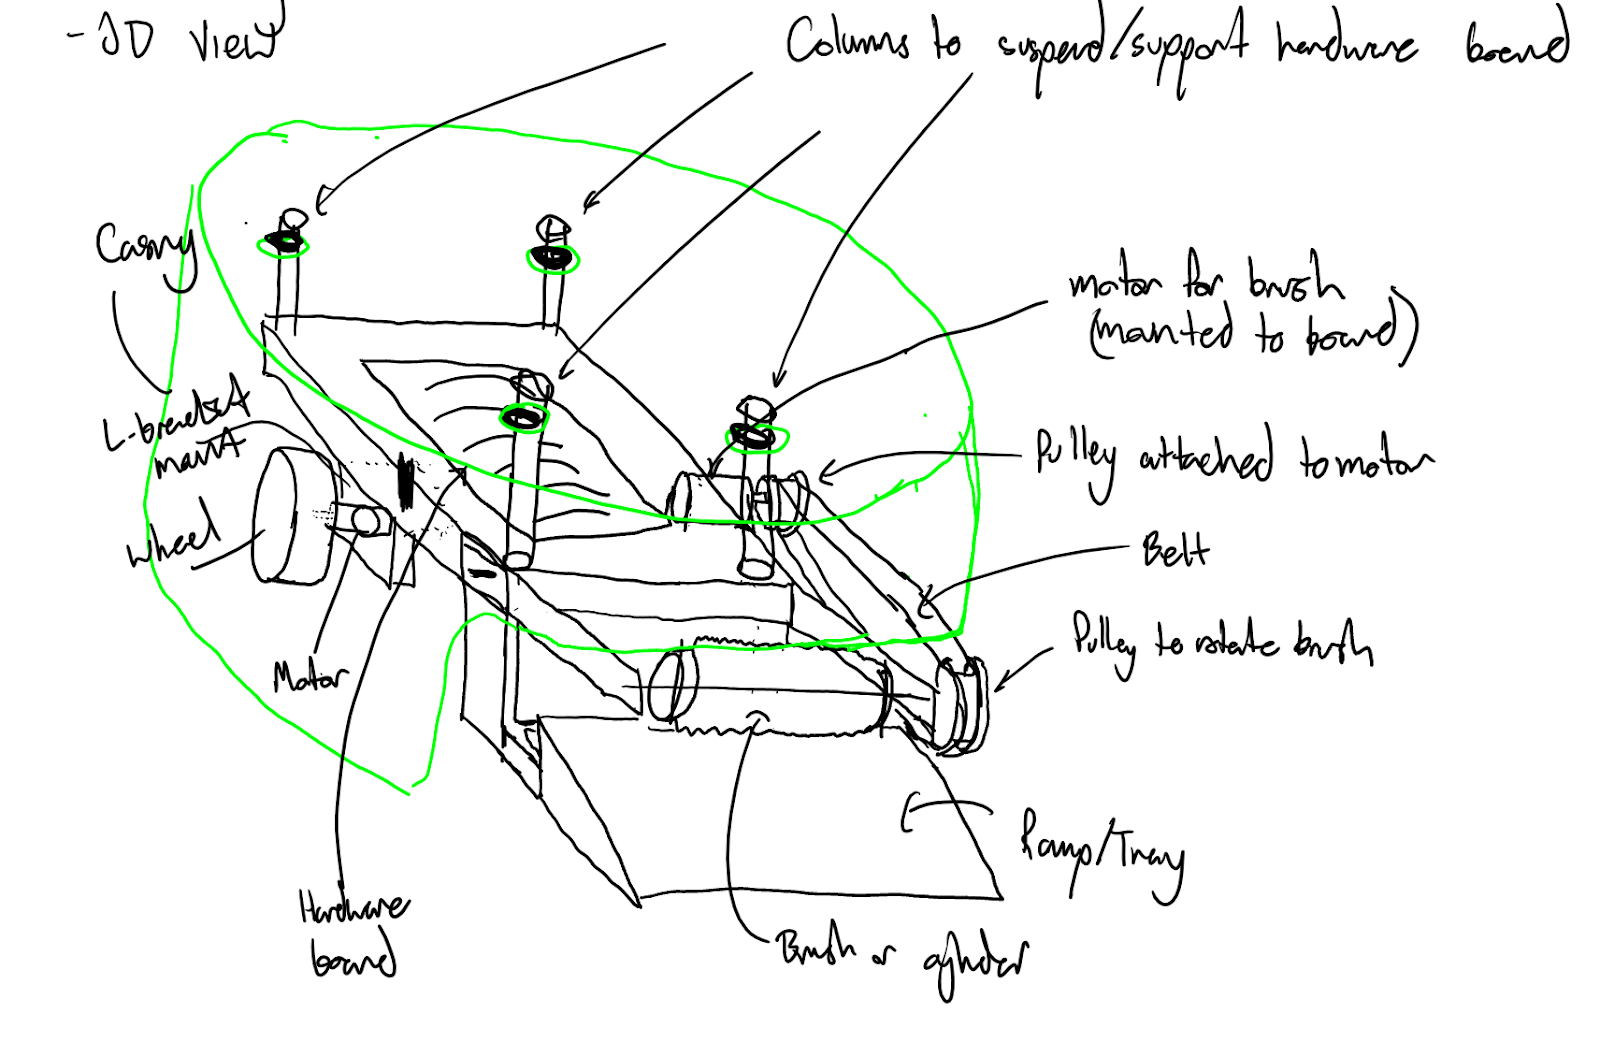 - 3D View
Columns to suspend/support hardware board
Casing
motor for brush
(mounted to board)
L-bracket
mount
Pulley attached to motor
Wheel
Belt
Motor
Pulley to rotate brush
Ramp/Tray
Hardware
board
Brush or cylinder